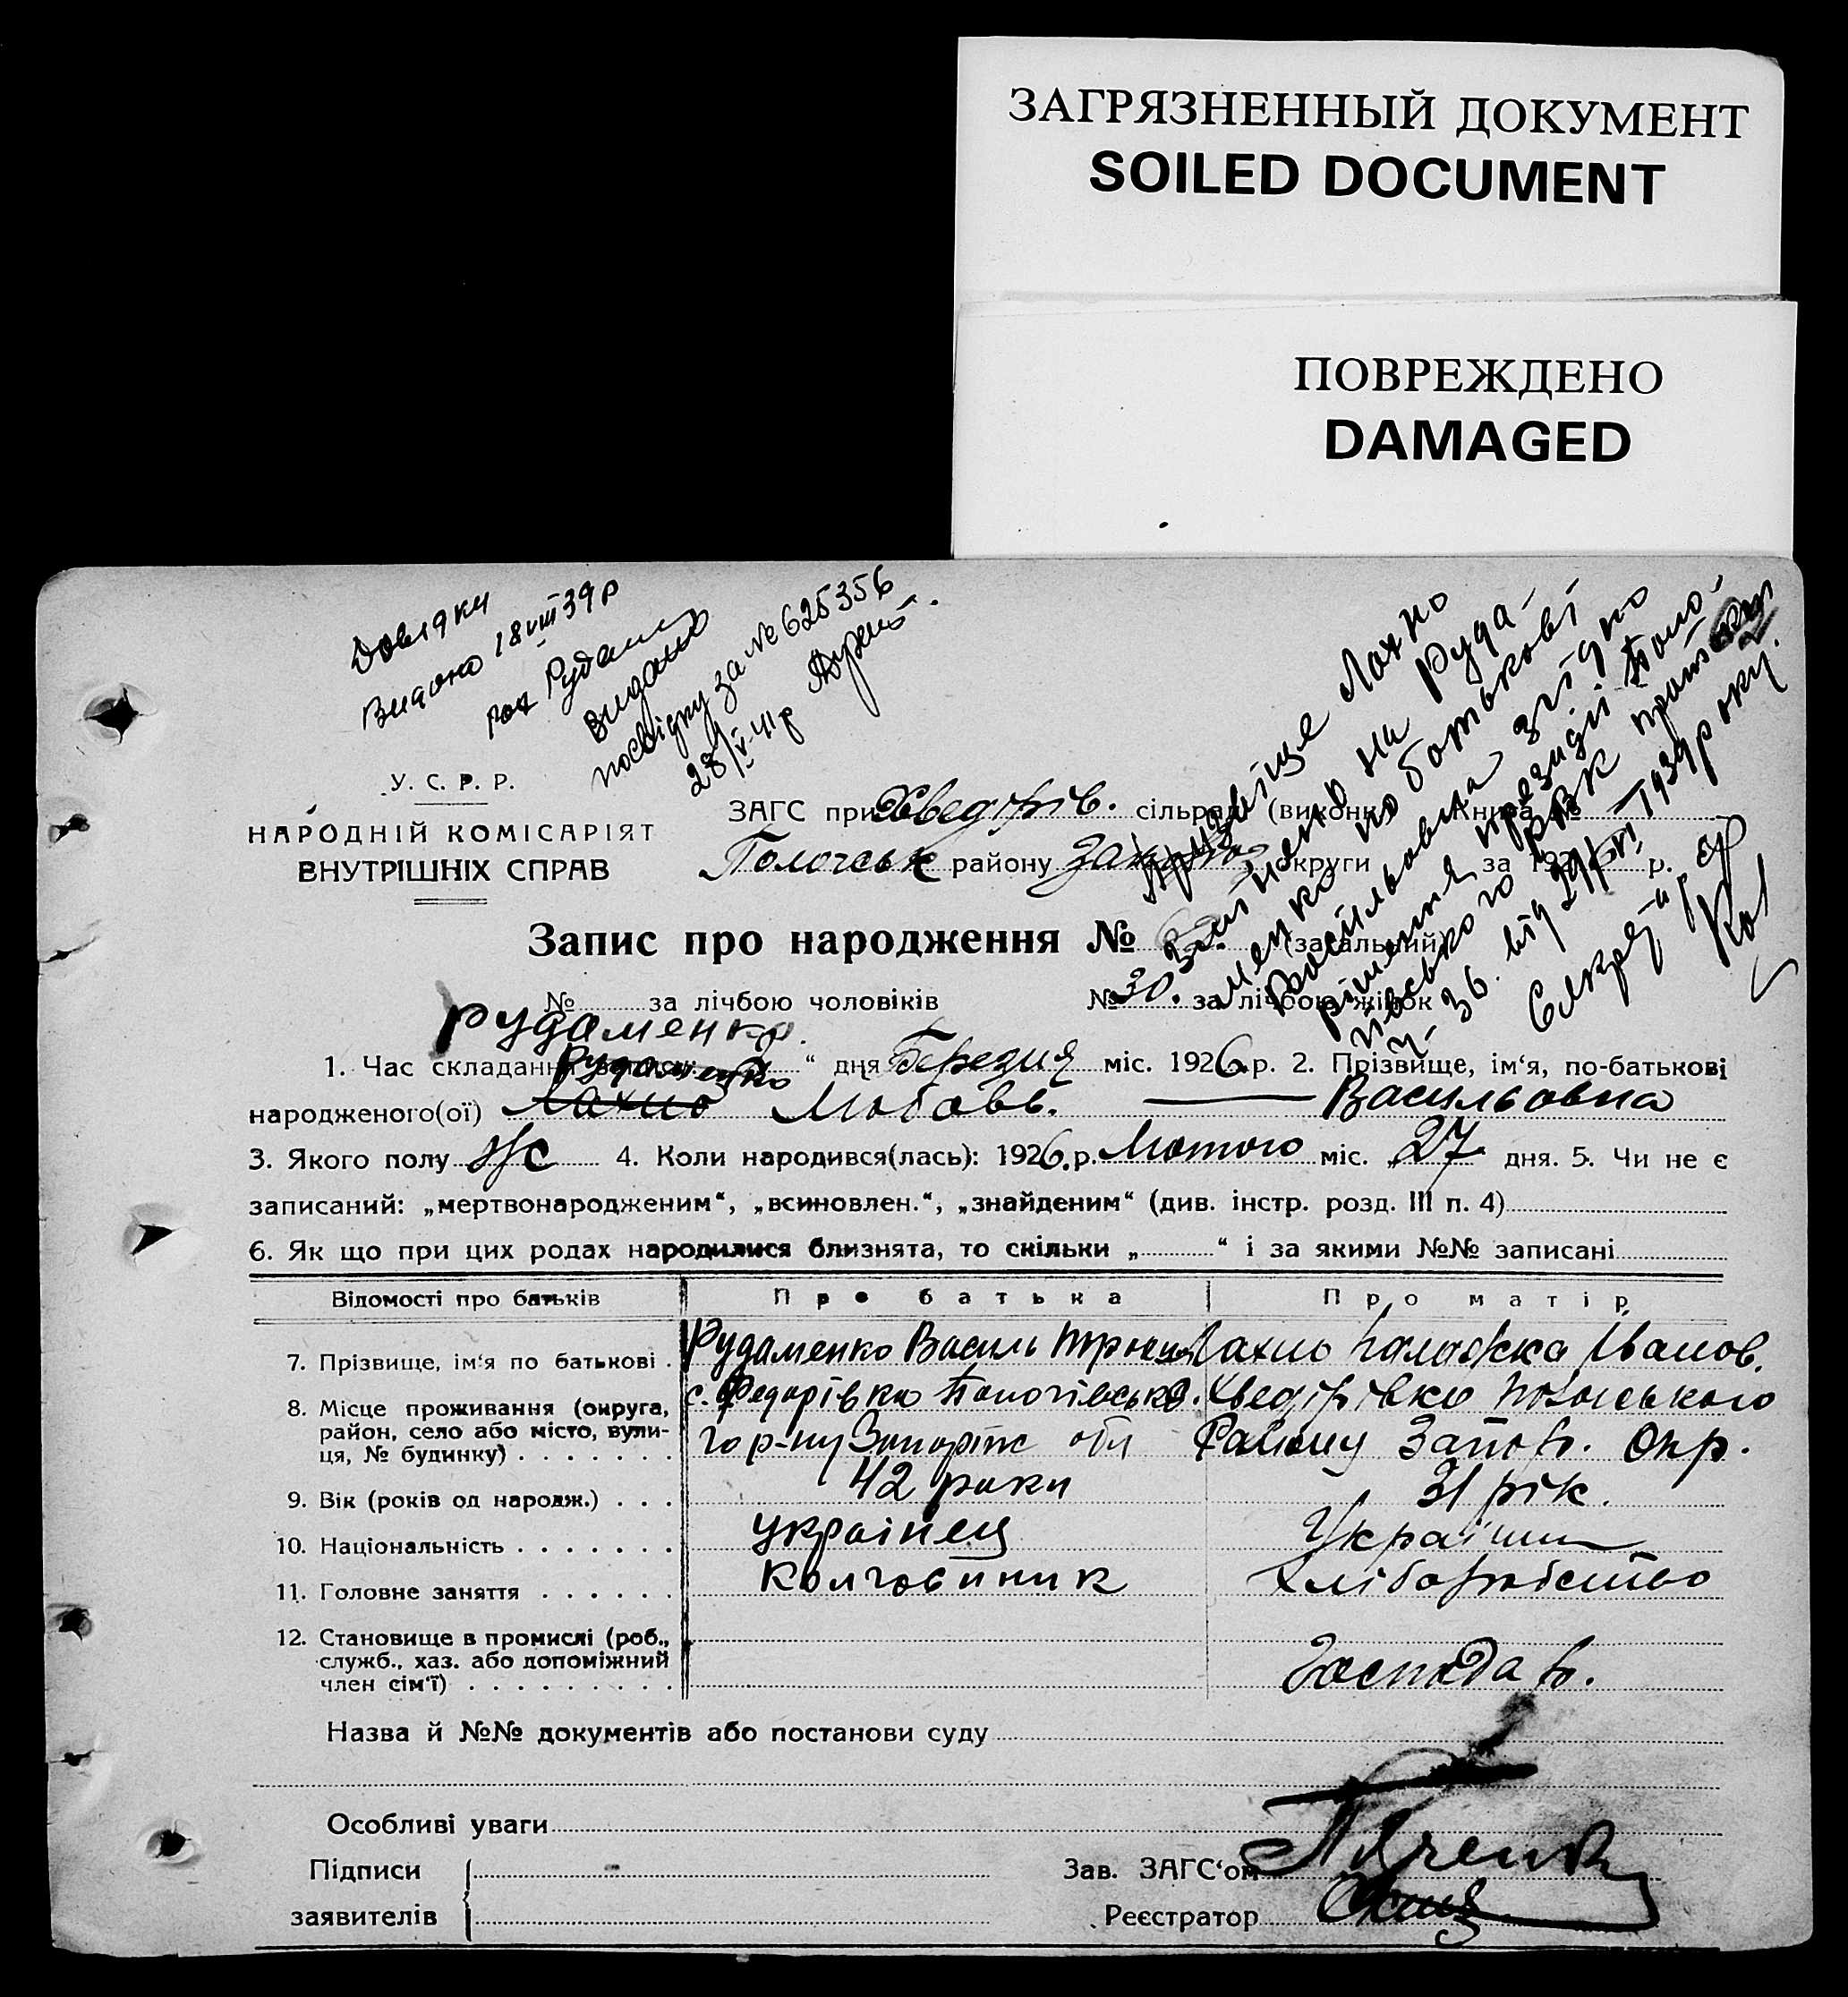 ЗАГРЯЗНЕННЫЙ ДОКУМЕНТ
SOILED DOCUMENT
ПОВРЕЖДЕНО
DAMAGED
Довідки
Видано 18 VIII 39 р
видано
посвідку за № 625356
28/V-41р
Прізвіще Лахно
змінено на Руда-
менко по батькові
Васильовна згідно
рішення президії Поло-
гівського РВК протокол
ч. 36. від 29/VII-1939 року.
Секрет-
У. С. Р. Р.
НАРОДНІЙ КОМІСАРІЯТ
ВНУТРІШНІХ СПРАВ
ЗАГС при Хведорів. сільраді (виконк.) Книга №
Пологськ району Запор округи за 1926 р.
Запис про народження № (загальний)
№ за лічбою чоловіків № 30. за лічбою жінок
Рудаменко.
1. Час складання запису: „ “ дня Березня міс. 1926 р. 2. Прізвище, ім‘я, по-батькові
Рудаменко
народженого(ої) Лахно Любовь. — Васильовна
3. Якого полу Жс 4. Коли народився(лась): 1926.р. Лютого міс. „27 дня. 5. Чи не є
записаний: „мертвонародженим“, „всиновлен.“, „знайденим“ (див. інстр. розд. III п. 4)
6. Як що при цих родах народилися близнята, то скільки „ “ і за якими №№ записані
Відомості про батьків Про батька Про матір
7. Прізвище, ім‘я по батькові . Рудаменко Василь Лахно Палажка Іванов.
8. Місце проживання (округа, с. Федорівка Пологівсько Хведорівка Пологського
район, село або місто, вули-
ця, № будинку) . . . . . . . го р-ну Запоріж обл Району Запор. Окр.
9. Вік (років од народж.) . . . 42 роки 31 рік.
10. Національність . . . . . . . українец Україн
11. Головне заняття . . . . . . Колговпник Хліборобство
12. Становище в промислі (роб.,
служб., хаз. або допоміжний
член сім‘ї) . . . . . . . . . Господар.
Назва й №№ документів або постанови суду
Особливі уваги
Підписи
заявителів
Зав. ЗАГС‘ом
Реєстратор